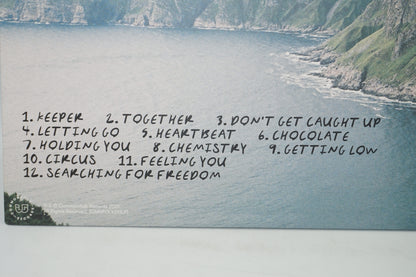 1. KEEPER 2. TOGETHER 3. DON'T GET CAUGHT UP
4. LETTING GO 5. HEARTBEAT 6. CHOCOLATE
7. HOLDING YOU 8. CHEMISTRY 9. GETTING LOW
10. CIRCUS 11. FEELING YOU
12. SEARCHING FOR FREEDOM
Records
All Rights Reserved.